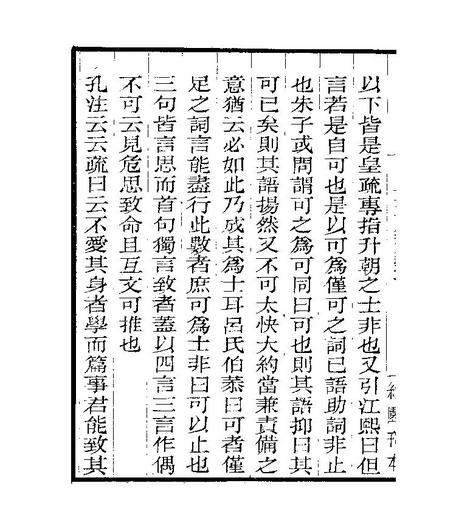 以下皆是皇疏專指升朝之士非也又引江熙曰但
言若是自可也是以可爲僅可之詞已語助詞非止
也朱子或問謂可之爲可同曰可也則其語抑曰其
可已矣則其語揚然又不可太快大約當兼責備之
意猶云必如此乃成其爲士耳呂氏伯恭曰可者僅
足之詞言能盡行此數者庶可爲士非曰可以止也
三句皆言思而首句獨言致者蓋以四言三言作偶
不可云見危思致命且互文可推也
孔注云云疏曰云不愛其身者學而篇事君能致其